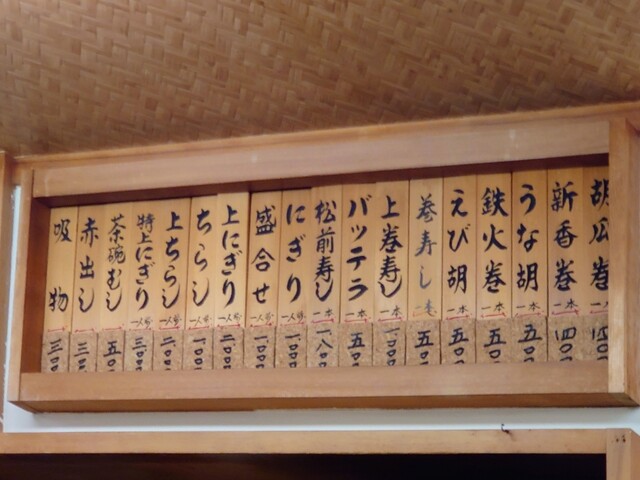 胡瓜巻 一本 四〇
新香巻 一本 四〇〇
うな胡 一本 五〇
鉄火巻 一本 五〇
えび胡 一本 五〇
巻寿し 一本 五〇
上巻寿し 一本 一〇〇
バッテラ 一本 五〇
松前寿し 一本 一八〇
にぎり 一人前 一〇〇
盛合せ 一人前 一〇〇
上にぎり 一人前 二〇〇
ちらし 一人前 一〇〇
上ちらし 一人前 二〇〇
特上にぎり 一人前 三〇
茶碗むし 五〇
赤出し 三〇
吸物 三〇